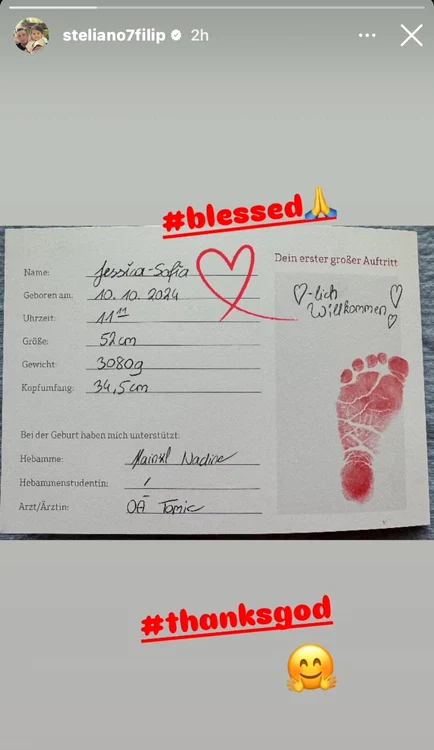 steliano7filip 2h
#blessed🙏
Name: Jessica-Sofia
Geboren am: 10.10.2024
Uhrzeit: 11¹¹
Größe: 52cm
Gewicht: 3080g
Kopfumfang: 34,5cm
Bei der Geburt haben mich unterstützt:
Hebamme: Nadine
Hebammenstudentin: /
Arzt/Ärztin: OÄ Tomic
Dein erster großer Auftritt
♡-lich
Willkommen
#thanksgod
🤗